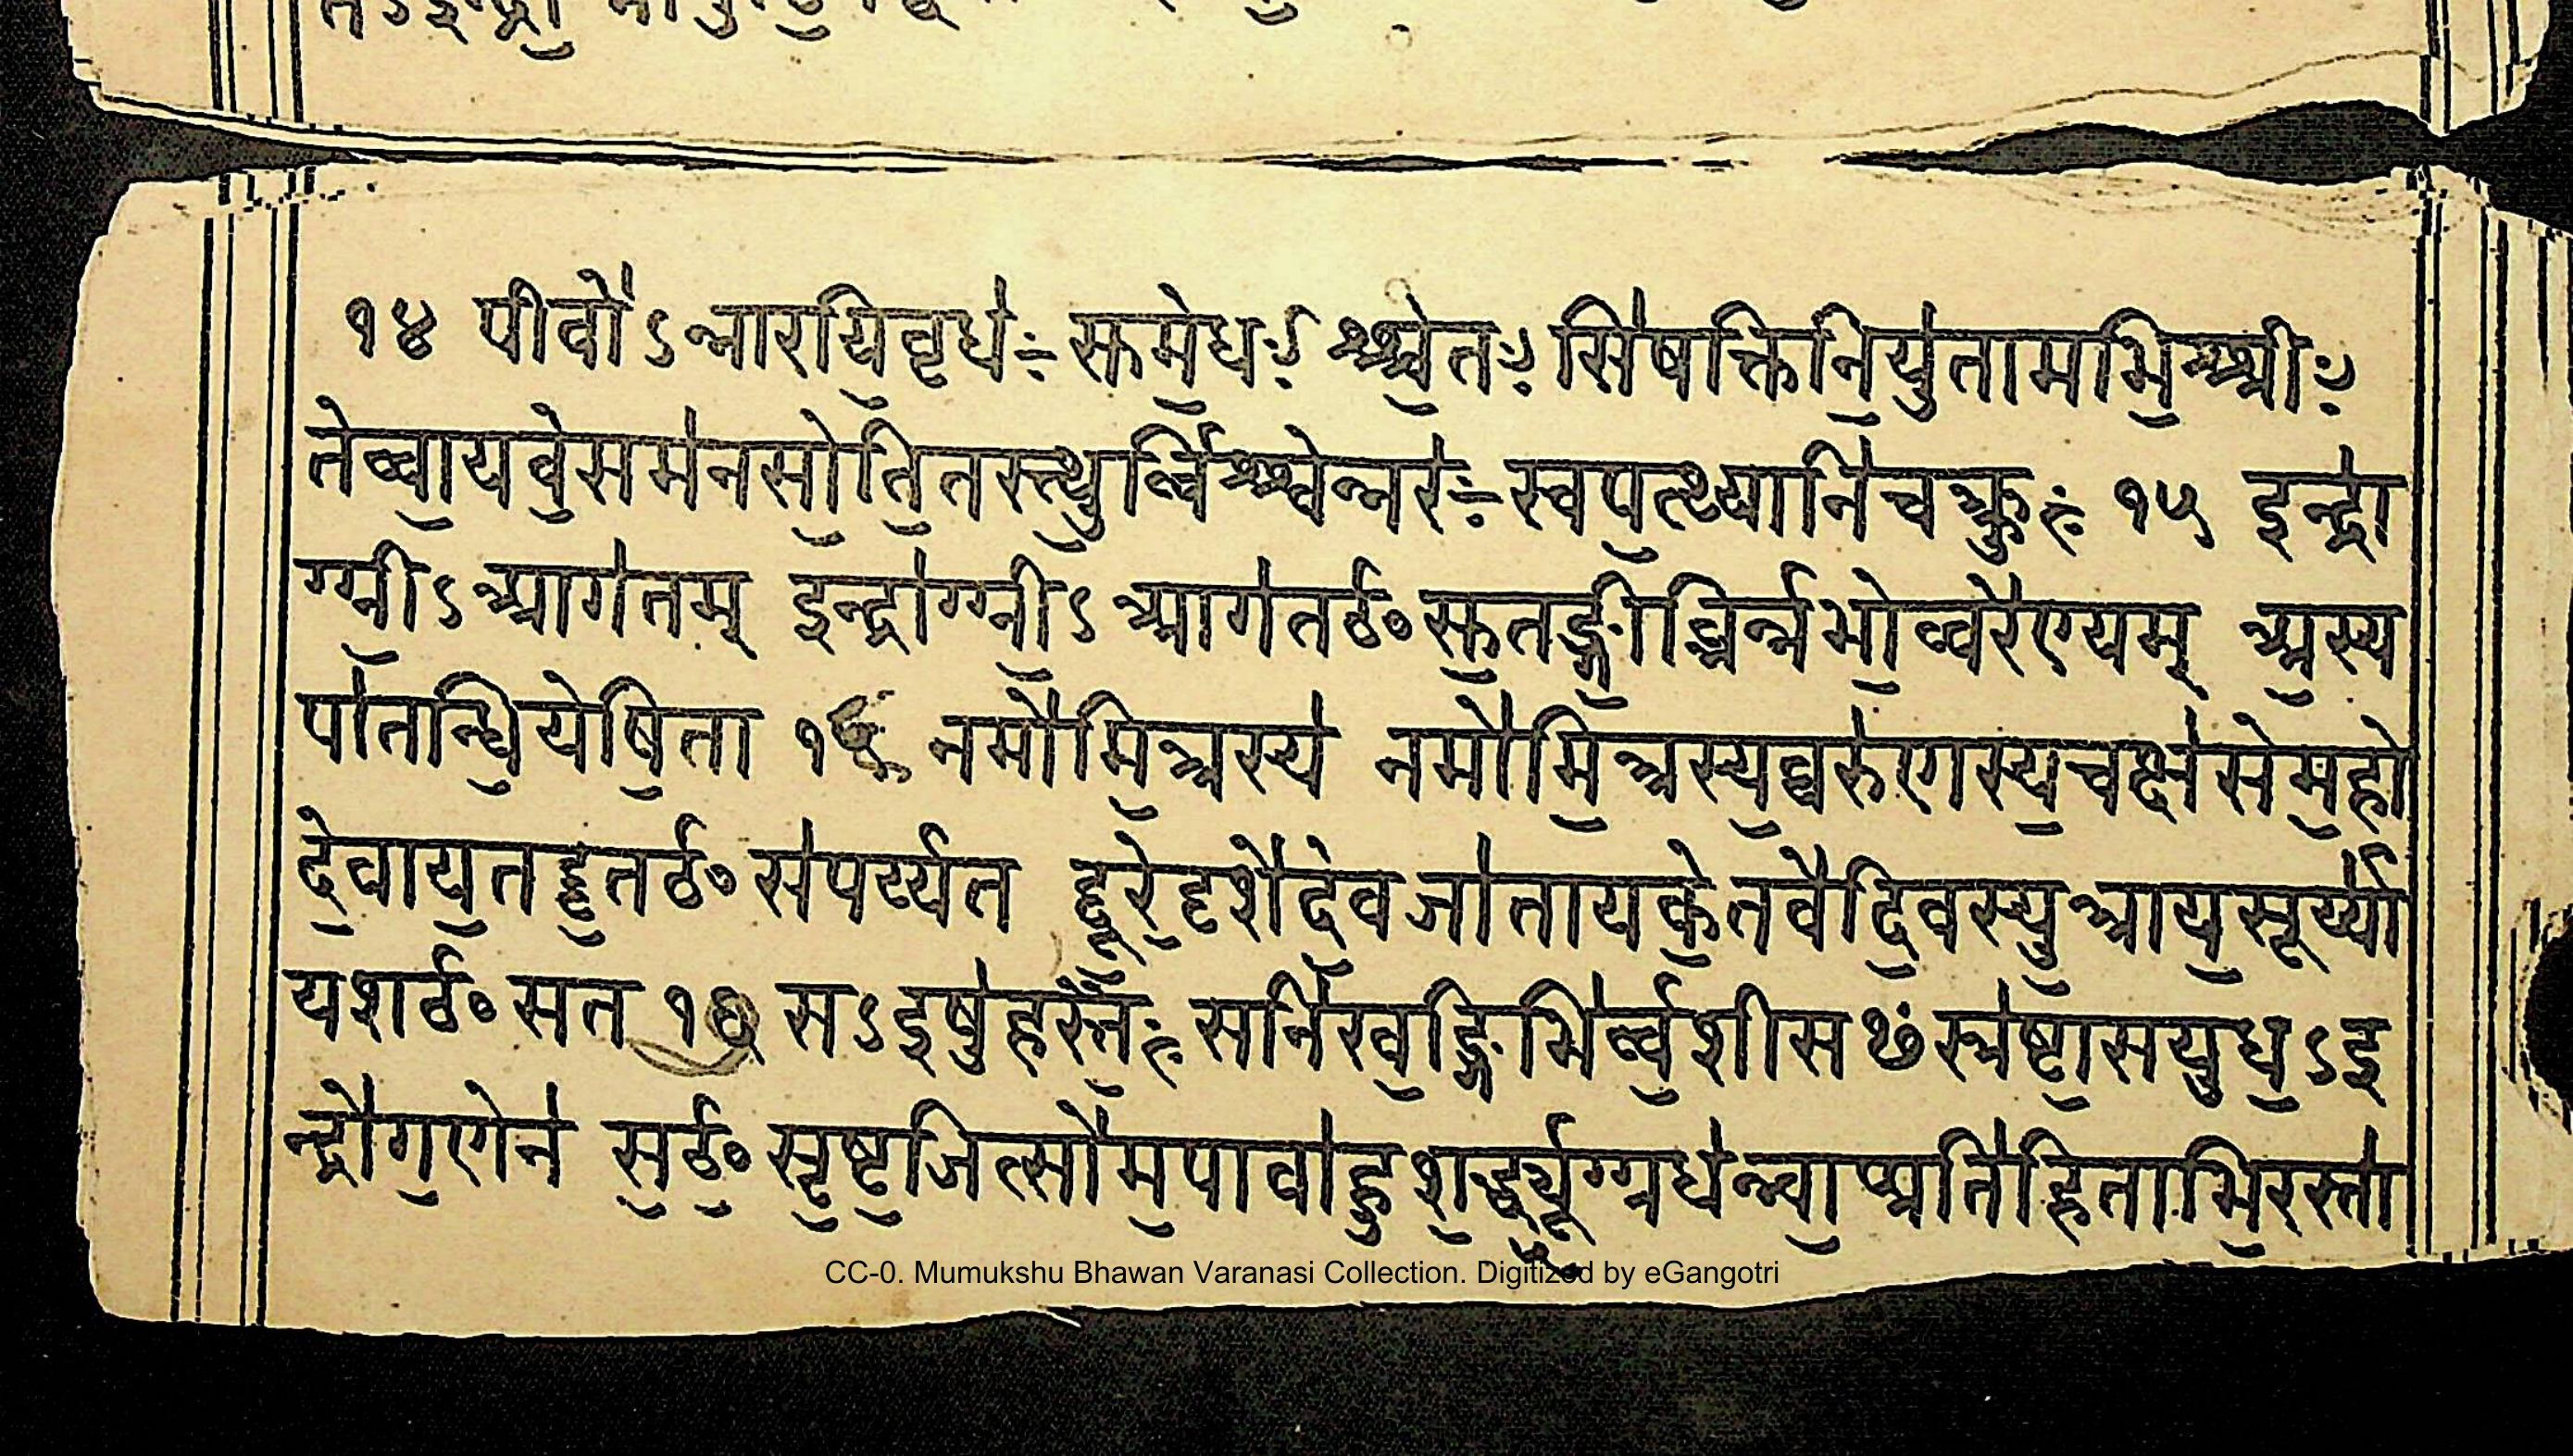 १४ पीवो॑ऽअन्नारयि॒वृध॑ः सुमे॒धाः श्श्वे॒तः सि॑षक्तिनि॒युता॑मभि॒श्श्रीः
तेव्वा॒यवे॒सम॑नसो॒वित॑स्त्थु॒र्व्विश्श्वेन्नर॑ः स्वप॒त्यानि॑चक्क्रुः १५ इन्द्रा॑
ग्ग्नी॒ऽआग॑तम् इन्द्रा॑ग्ग्नी॒ऽआग॑तᳯसु॒तङ्गी॒र्ब्भिर्न्नभो॒व्वरे॑ण्यम् अ॒स्य
पा॑तन्धि॒येषि॒ता १६ नमो॑मि॒त्रस्य॑ नमो॑मि॒त्रस्य॒व्वरु॑णस्य॒चक्ष॑सेम॒हो
दे॒वाय॒तदृ॒तᳯस॑पर्य्यत दू॒रे॒दृशे॑दे॒वजा॑तायके॒तवे॑दि॒वस्पु॒त्राय॒सूर्य्या॑
यशᳯसत १७ सऽइषु॑हस्तै॒ः सनि॑ख॒ङ्गिभि॑र्व्व॒शीसᳯस्र॑ष्टा॒सयुध॒ऽइ
न्द्रो॑ग॒णेन॑ स॒ᳯ॒सृ॒ष्ट॒जित्सो॑म॒पाबा॑हुश॒र्द्ध्यु॒ग्ग्रध॑न्वा॒प्प्रति॑हिताभि॒रस्ता॑
CC-0. Mumukshu Bhawan Varanasi Collection. Digitized by eGangotri